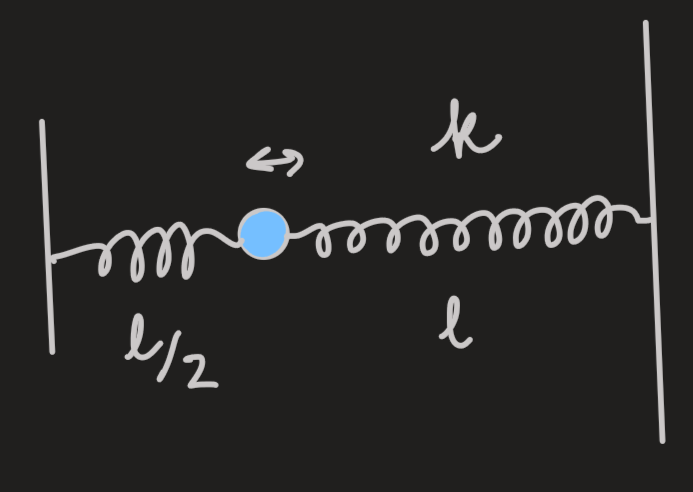 k
l/2
l